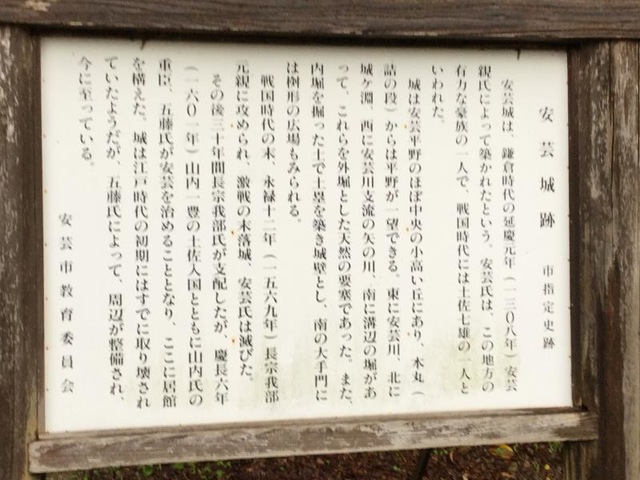 安芸城跡　市指定史跡
安芸城は、鎌倉時代の延慶元年（一三〇八年）安芸
親氏によって築かれたという。安芸氏は、この地方の
有力な豪族の一人で、戦国時代には土佐七雄の一人と
いわれた。
城は安芸平野のほぼ中央の小高い丘にあり、本丸（
詰の段）からは平野が一望できる。東に安芸川、北に
城ケ淵、西に安芸川支流の矢の川、南に溝辺の堀があ
って、これらを外堀とした天然の要塞であった。また、
内堀を掘った土で土塁を築き城壁とし、南の大手門に
は桝形の広場もみられる。
戦国時代の末、永禄十二年（一五六九年）長宗我部
元親に攻められ、激戦の末落城、安芸氏は滅びた。
その後三十年間長宗我部氏が支配したが、慶長六年
（一六〇一年）山内一豊の土佐入国とともに山内氏の
重臣、五藤氏が安芸を治めることとなり、ここに居館
を構えた。城は江戸時代の初期にはすでに取り壊され
ていたようだが、五藤氏によって、周辺が整備され、
今に至っている。
安芸市教育委員会